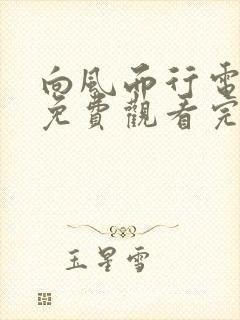 向風而行電
免費觀看完
玉星雪